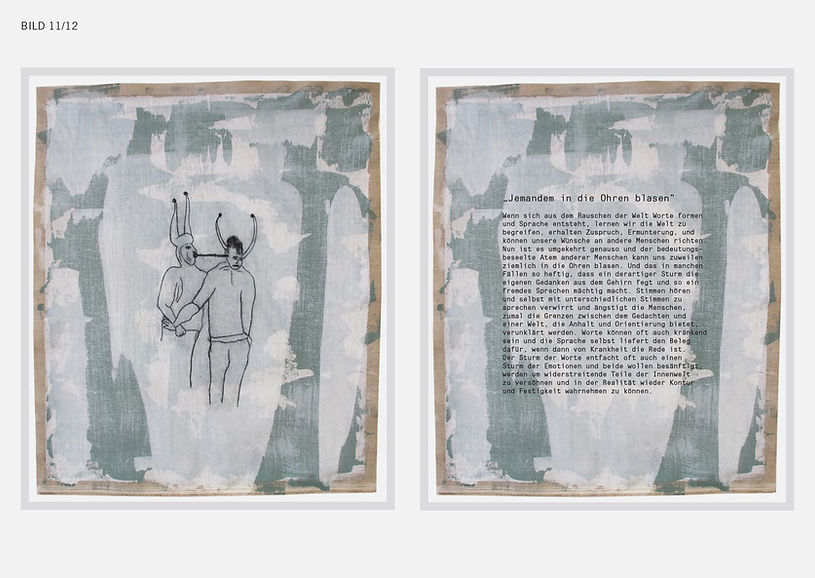 BILD 11/12
„Jemandem in die Ohren blasen"
Wenn sich aus dem Rauschen der Welt Worte formen
und Sprache entsteht, lernen wir die Welt zu
begreifen, erhalten Zuspruch, Ermunterung, und
können unsere Wünsche an andere Menschen richten.
Nun ist es umgekehrt genauso und der bedeutungs-
beseelte Atem anderer Menschen kann uns zuweilen
ziemlich in die Ohren blasen. Und das in manchen
Fällen so heftig, dass ein derartiger Sturm die
eigenen Gedanken aus dem Gehirn fegt und so ein
fremdes Sprechen mächtig macht. Stimmen hören
und selbst mit unterschiedlichen Stimmen zu
sprechen verwirrt und ängstigt die Menschen,
zumal die Grenzen zwischen dem Gedachten und
einer Welt, die Anhalt und Orientierung bietet,
verunklärt werden. Worte können oft auch kränkend
sein und die Sprache selbst liefert den Beleg
dafür, wenn dann von Krankheit die Rede ist.
Der Sturm der Worte entfacht oft auch einen
Sturm der Emotionen und beide wollen besänftigt
werden um widerstreitende Teile der Innenwelt
zu versöhnen und in der Realität wieder Kontur
und Festigkeit wahrnehmen zu können.